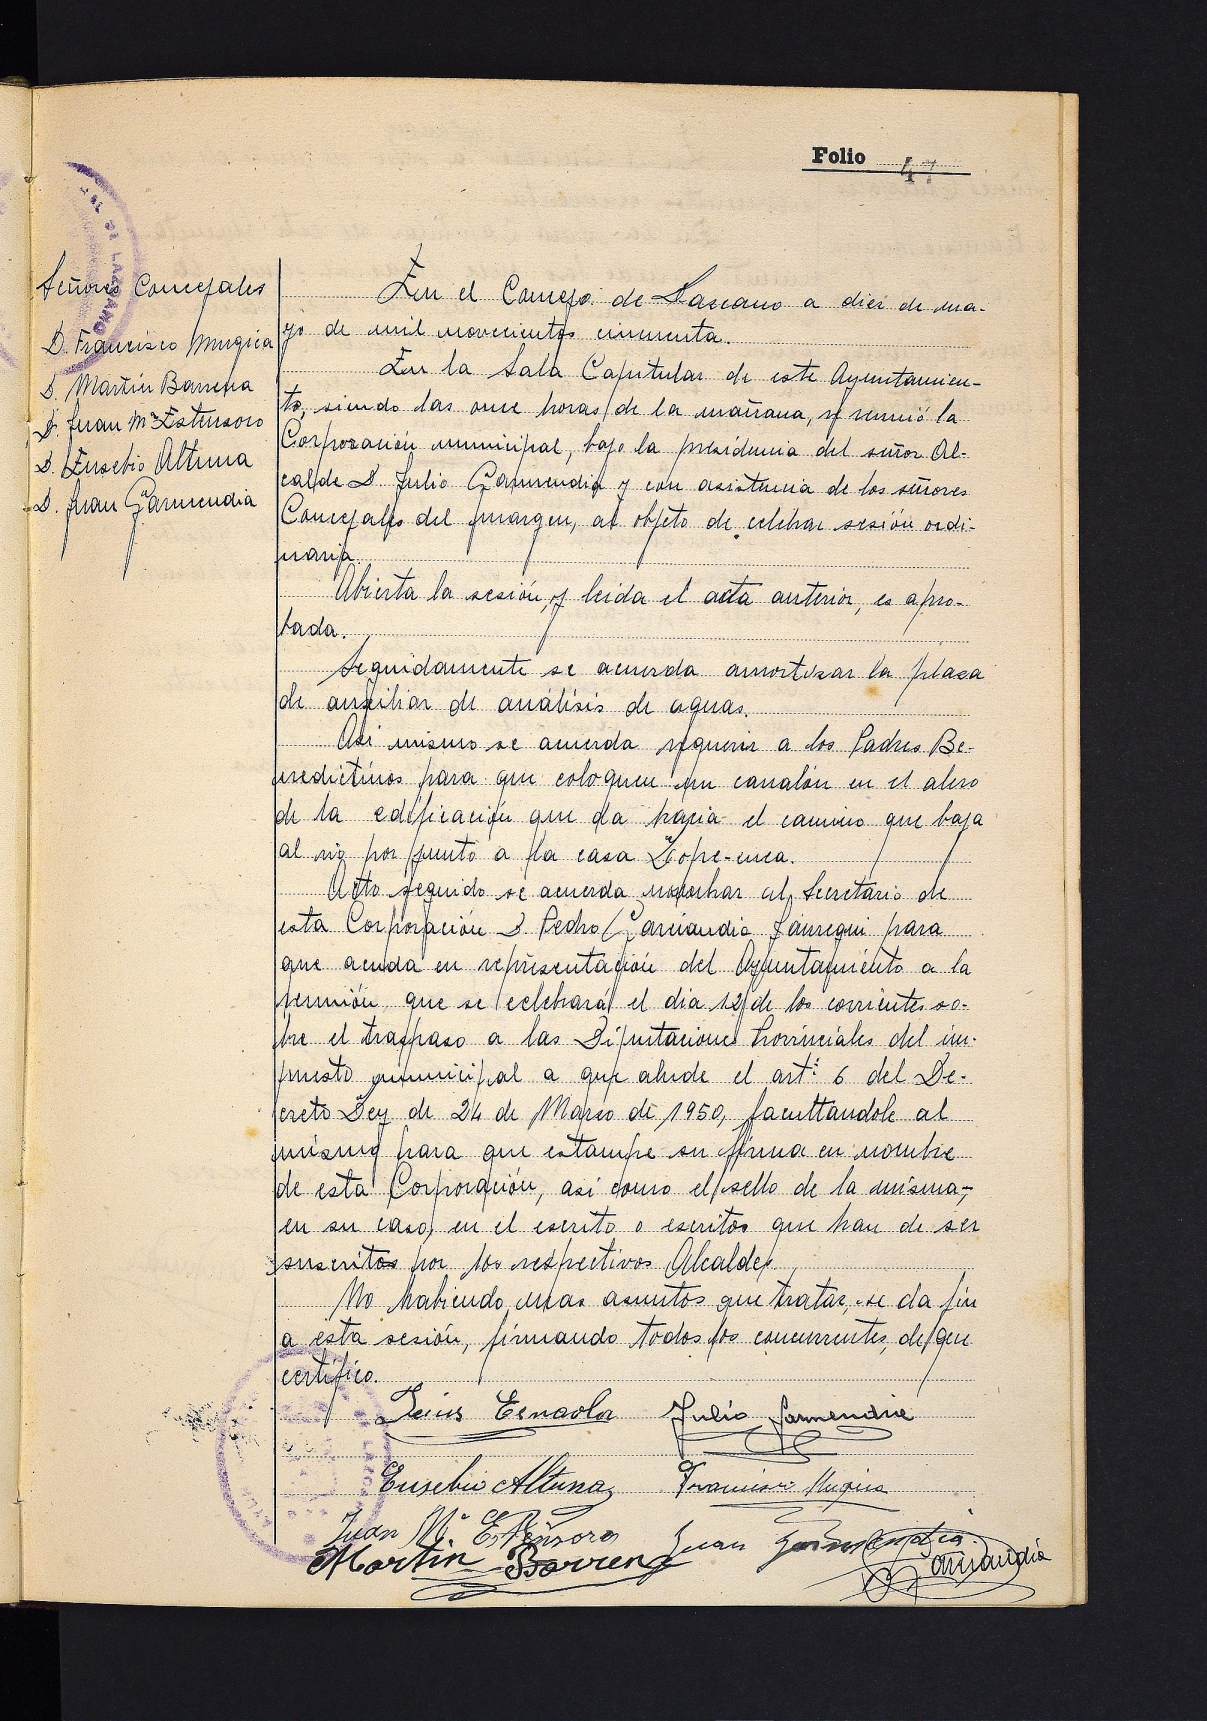 Folio 47
Señores Concejales
D. Francisco Mugica
D. Martin Barrena
D. Juan Mª Estensoro
D. Eusebio Altuna
D. Juan Garmendia
En el Concejo de Lazcano a diez de ma-
yo de mil novecientos cincuenta.
En la Sala Capitular de este Ayuntamien-
to, siendo las once horas de la mañana, se reunió la
Corporación municipal, bajo la presidencia del señor Al-
calde D. Julio Garmendia y con asistencia de los señores
Concejales del margen, al objeto de celebrar sesión ordi-
naria.
Abierta la sesión, y leida el acta anterior, es apro-
bada.
Seguidamente se acuerda amortizar la plaza
de auxiliar de análisis de aguas.
Asi mismo se acuerda requerir a los Padres Be-
nedictinos para que coloquen un canalón en el alero
de la edificación que da hacia el camino que baja
al rio por junto a la casa Lope-enea.
Acto seguido se acuerda nombrar al Secretario de
esta Corporación D. Pedro Garciandia Jauregui para
que acuda en representación del Ayuntamiento a la
reunión que se celebrará el dia 12 de los corrientes so-
bre el traspaso a las Diputaciones Provinciales del im-
puesto municipal a que alude el artº 6 del De-
creto Ley de 24 de Marzo de 1950, facultandole al
mismo para que estampe su firma en nombre
de esta Corporación, asi como el sello de la misma,
en su caso, en el escrito o escritos que han de ser
suscritos por los respectivos Alcaldes.
No habiendo mas asuntos que tratar, se da fin
a esta sesión, firmando todos los concurrentes, de que
certifico.
Esnaola Julio Garmendia
Eusebio Altuna Francisco Mugica
Juan Mª Estensoro Juan Garmendia
Martin Barrena Garciandia